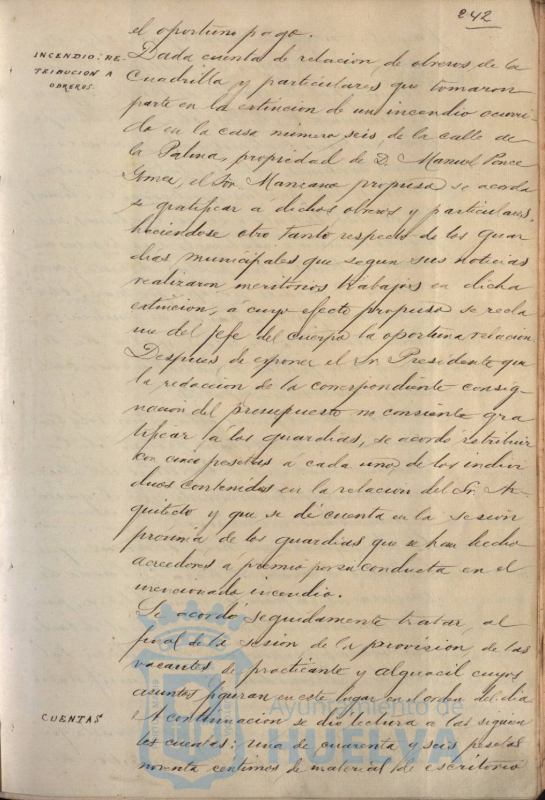 242
el oportuno pago.
INCENDIO: RE-
TRIBUCION A
OBREROS
Dada cuenta de relacion de obreros de la
Cuadrilla y particulares que tomaron
parte en la extincion de un incendio ocurri-
do en la casa número seis de la calle de
la Palma, propiedad de D. Manuel Ponce
el Sr. Manzano propuso se acorda
se gratificar á dichos obreros y particulares,
haciendose otro tanto respecto de los guar
dias municipales que segun sus noticias
realizaron meritorios trabajos en dicha
extincion, á cuyo efecto propuso se recla
me del Jefe del cuerpo la oportuna relacion.
Despues de exponer el Sr. Presidente que
la redaccion de la correspondiente consig-
nacion del presupuesto no consiente gra
tificar á los guardias, se acordó retribuir
con cinco pesetas á cada uno de los indivi
duos contenidos en la relacion del Sr. Ar-
quitecto y que se dé cuenta en la sesion
proxima de los guardias que se han hecho
acreedores á premio por su conducta en el
mencionado incendio.
Se acordó seguidamente tratar, al
final de la sesion de la provision de las
vacantes de practicante y alguacil cuyos
asuntos figuran en este lugar en el orden del dia
CUENTAS
A continuacion se dió lectura a las siguien
tes cuentas: Una de cuarenta y seis pesetas
noventa centimos de material de escritorio
Ayuntamiento de
HUELVA